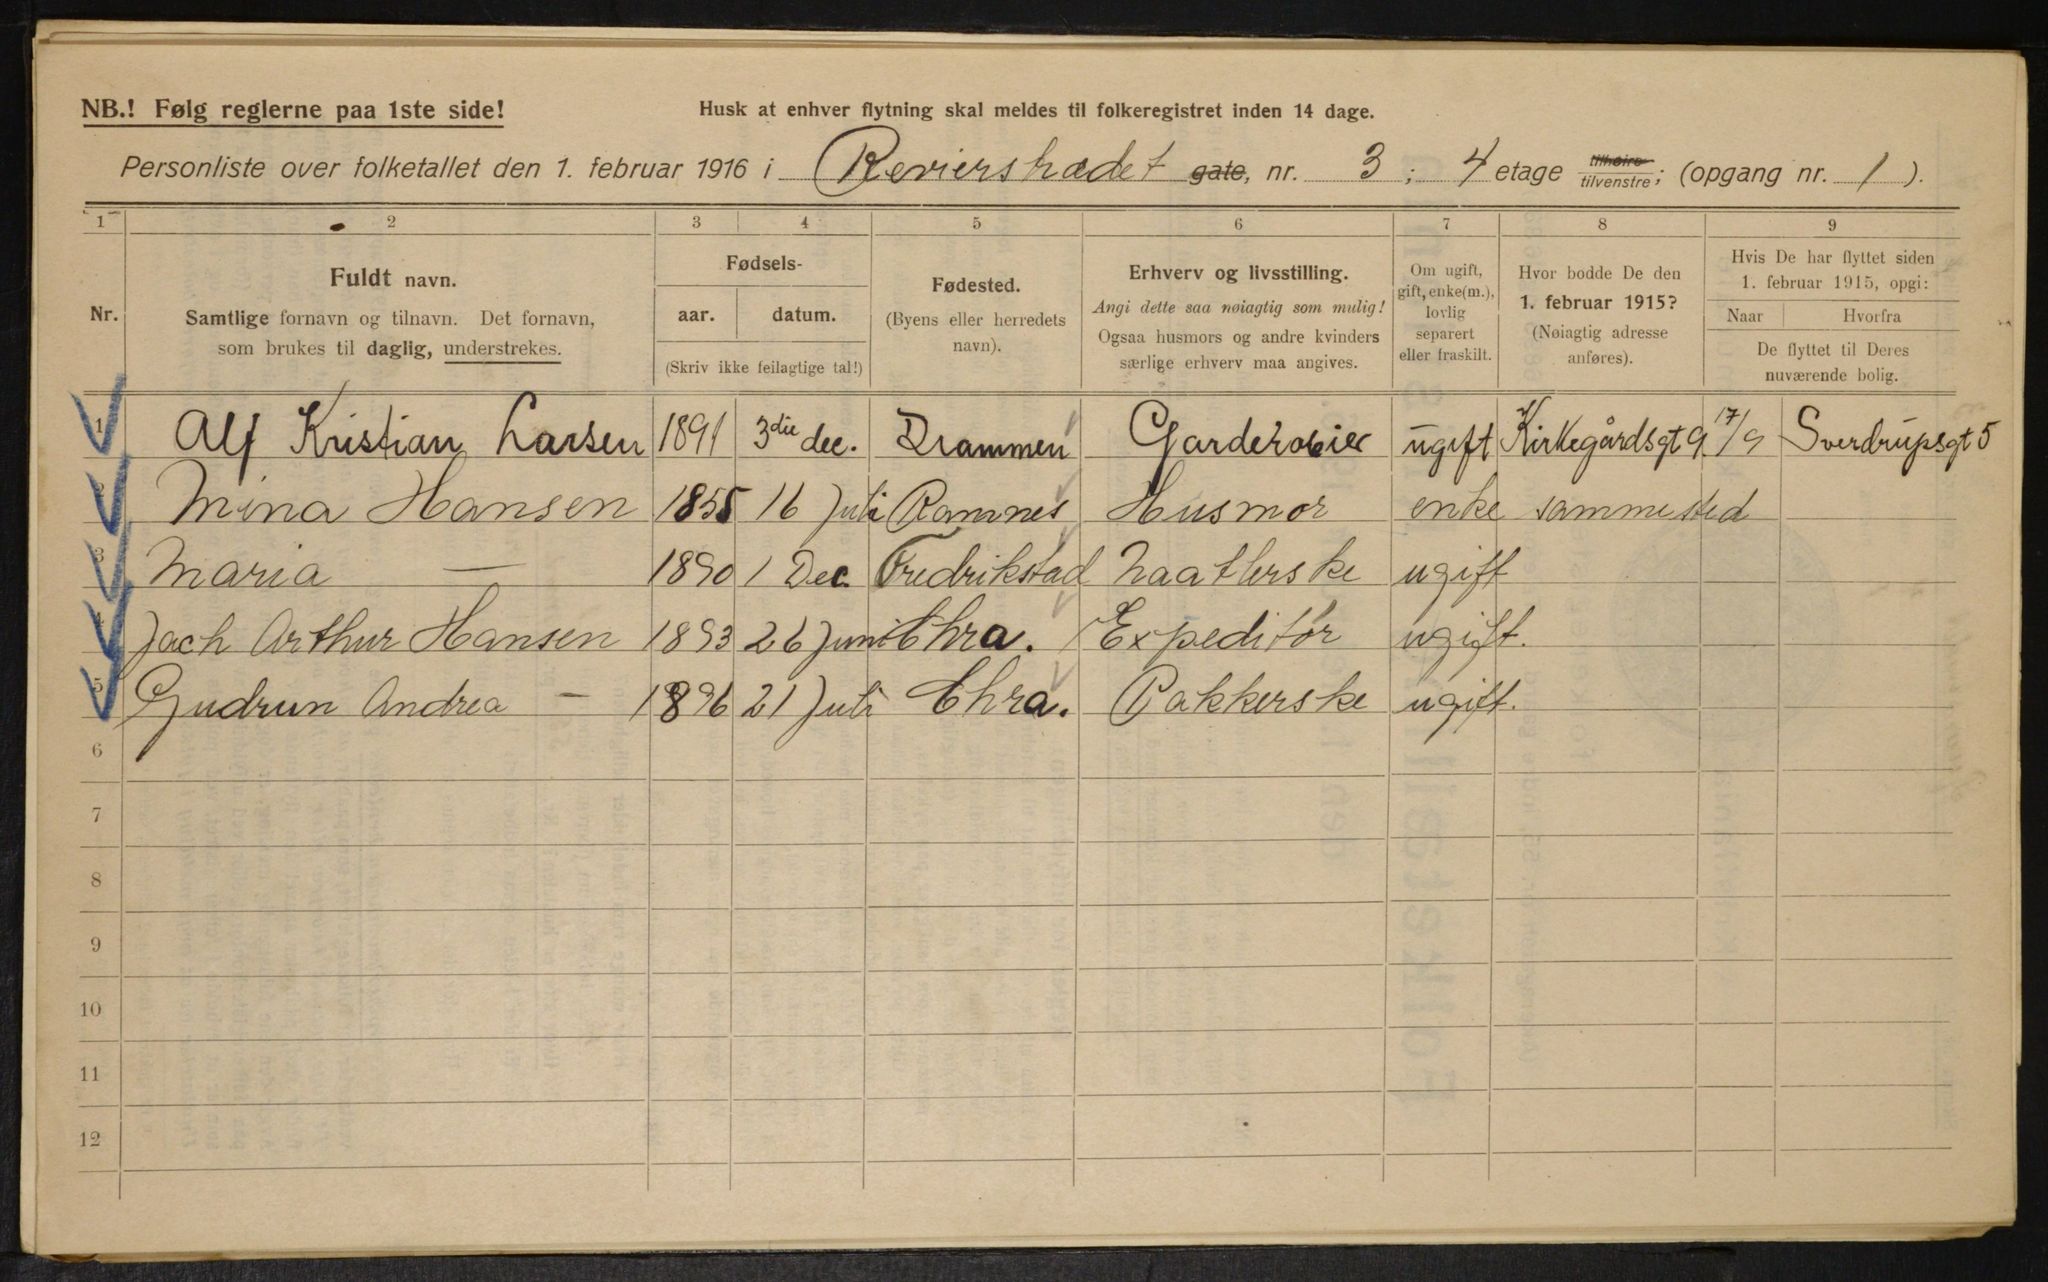 NB.! Følg reglerne paa 1ste side!
Husk at enhver flytning skal meldes til folkeregistret inden 14 dage.
Personliste over folketallet den 1. februar 1916 i Revierstrædet gate, nr. 3; 4 etage tilhøire tilvenstre; (opgang nr. 1).
1 2 3 4 5 6 7 8 9
Nr.
Fuldt navn.
Samtlige fornavn og tilnavn. Det fornavn,
som brukes til daglig, understrekes.
Fødsels-
aar. datum.
(Skriv ikke feilagtige tal!)
Fødested.
(Byens eller herredets
navn).
Erhverv og livsstilling.
Angi dette saa nøiagtig som mulig!
Ogsaa husmors og andre kvinders
særlige erhverv maa angives.
Om ugift,
gift, enke(m.),
lovlig
separert
eller fraskilt.
Hvor bodde De den
1. februar 1915?
(Nøiagtig adresse
anføres).
Hvis De har flyttet siden
1. februar 1915, opgi:
Naar Hvorfra
De flyttet til Deres
nuværende bolig.
1 Alf Kristian Larsen 1891 3die dec. Drammen Garderobier ugift Kirkegårdsgt 9 17/9 Sverdrupsgt 5
2 Mina Hansen 1855 16 Juli Ramnes Husmor enke sammested
3 Maria — 1890 1 Dec. Fredrikstad Naatlerske ugift
4 Jach Arthur Hansen 1893 26 Juni Chra. Expeditør ugift.
5 Gudrun Andrea — 1896 21 Juli Chra. Pakkerske ugift.
6
7
8
9
10
11
12